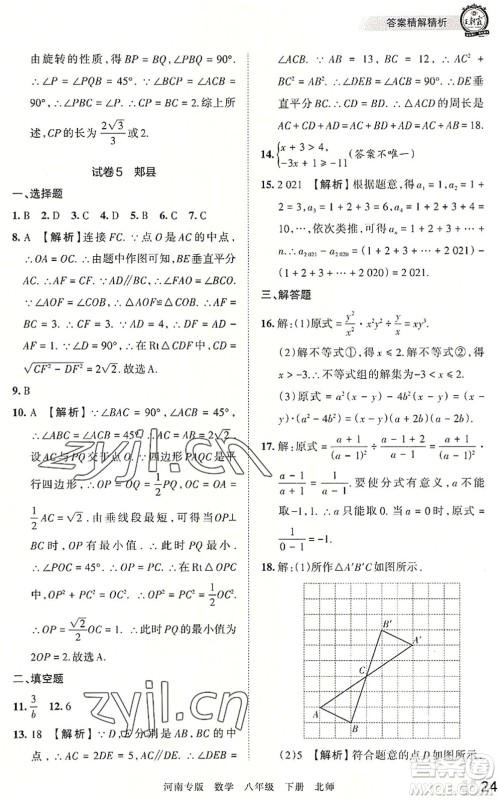 答案精解精析
由旋转的性质,得BP=BQ,∠PBQ=90°.
∴∠BPQ=∠PQB=45°.∵∠BCP=∠ACB=
90°,∴∠PBC=∠BPC=45°.∴CP=BC=2.综上所
述,CP的长为2√3/3或2.
试卷5 郏县
一、选择题
1. B 2. D 3. C 4. D 5. C 6. D 7. C
8. A 【解析】连接FC.∵点O是AC的中点,
∴OA=OC.∴由题中作图可知,BE垂直平分
AC.∴AF=CF.∵AD∥BC,∴∠FAO=∠BCO.
∵∠AOF=∠COB,∴△AOF≌△COB.∴AF=
CB=3.∴CF=3.∵∠D=90°,∴在Rt△CDF中,CD=
√CF²-DF²=2√2.故选A.
9. B
10. A 【解析】∵∠BAC=90°,∠ABC=45°,
∴∠ABC=∠ACB=45°.∴AB=AC=2√2.
设AC与PQ交于点O.∵四边形PAQC是平
行四边形,∴OP=OQ=1/2PQ,OA=OC=
1/2AC=√2.由垂线段最短可知,当OP⊥
BC时,OP有最小值.∵∠ACB=45°,
∴OP=PC.在Rt△OPC中,由勾股定理,得
OP²+PC²=OC².∴OP²+OP²=OC².
∴2OP²=OC².∴OP=√2/2OC=1.故此时PQ的最小
值为2OP=2.故选A.
二、填空题
11. 3/b 12. 6
13. 18 【解析】∵D,E分别为AB,BC的中点,
∴AC=2DE=5,AC∥DE.∵AC²+BC²=5²+
12²=169,AB²=13²=169,∴AC²+BC²=
AB².∴∠ACB=90°.∵AC∥DE,
∴∠DEB=∠ACB=90°.∴DE垂
直平分BC.∴DC=BD.∴△ACD的周长是
AC+CD+AD=AC+BD+AD=AC+AB=18.
14. {x+3>4, -3x+1>-11 (答案不唯一)
15. 2 021 【解析】根据题意,得a₁=1,a₂=1+
2=3,a₃=1+2+3=6,a₄=1+2+3+4=
10,…,依次类推,可得aₙ=1+2+3+…+n.
∴a₂ ₀₂₁-a₂ ₀₂₀=(1+2+3+…+2 021)-
(1+2+3+…+2 020)=2 021.
三、解答题
16. 解:(1)原式=y²/x²·x²y²÷y/x=xy³.
(2)解不等式①,得x>-3.解不等式②,得
x<-3.∴不等式组的解集是-3<x<-3.
(3)原式=a²(x-y)-4b²(x-y)=
(x-y)(a²-4b²)=(x-y)(a+2b)(a-2b).
17. 解:原式=(a+1)/(a-1)²÷(a+1)/(a-1)=(a+1)/(a-1)²·
(a-1)/(a+1)=1/(a-1).要使分式有意义,a不能
取-1和1.∴a只能取0.当a=0时,原式=
1/(0-1)=-1.
18. 解:(1)所作△A′B′C如图所示.
B′
A′
C
A
B
(2)5 【解析】符合题意的点D如图所示.
河南专版 数学 八年级 下册 北师
24
zyjl.cn
zyjl.cn